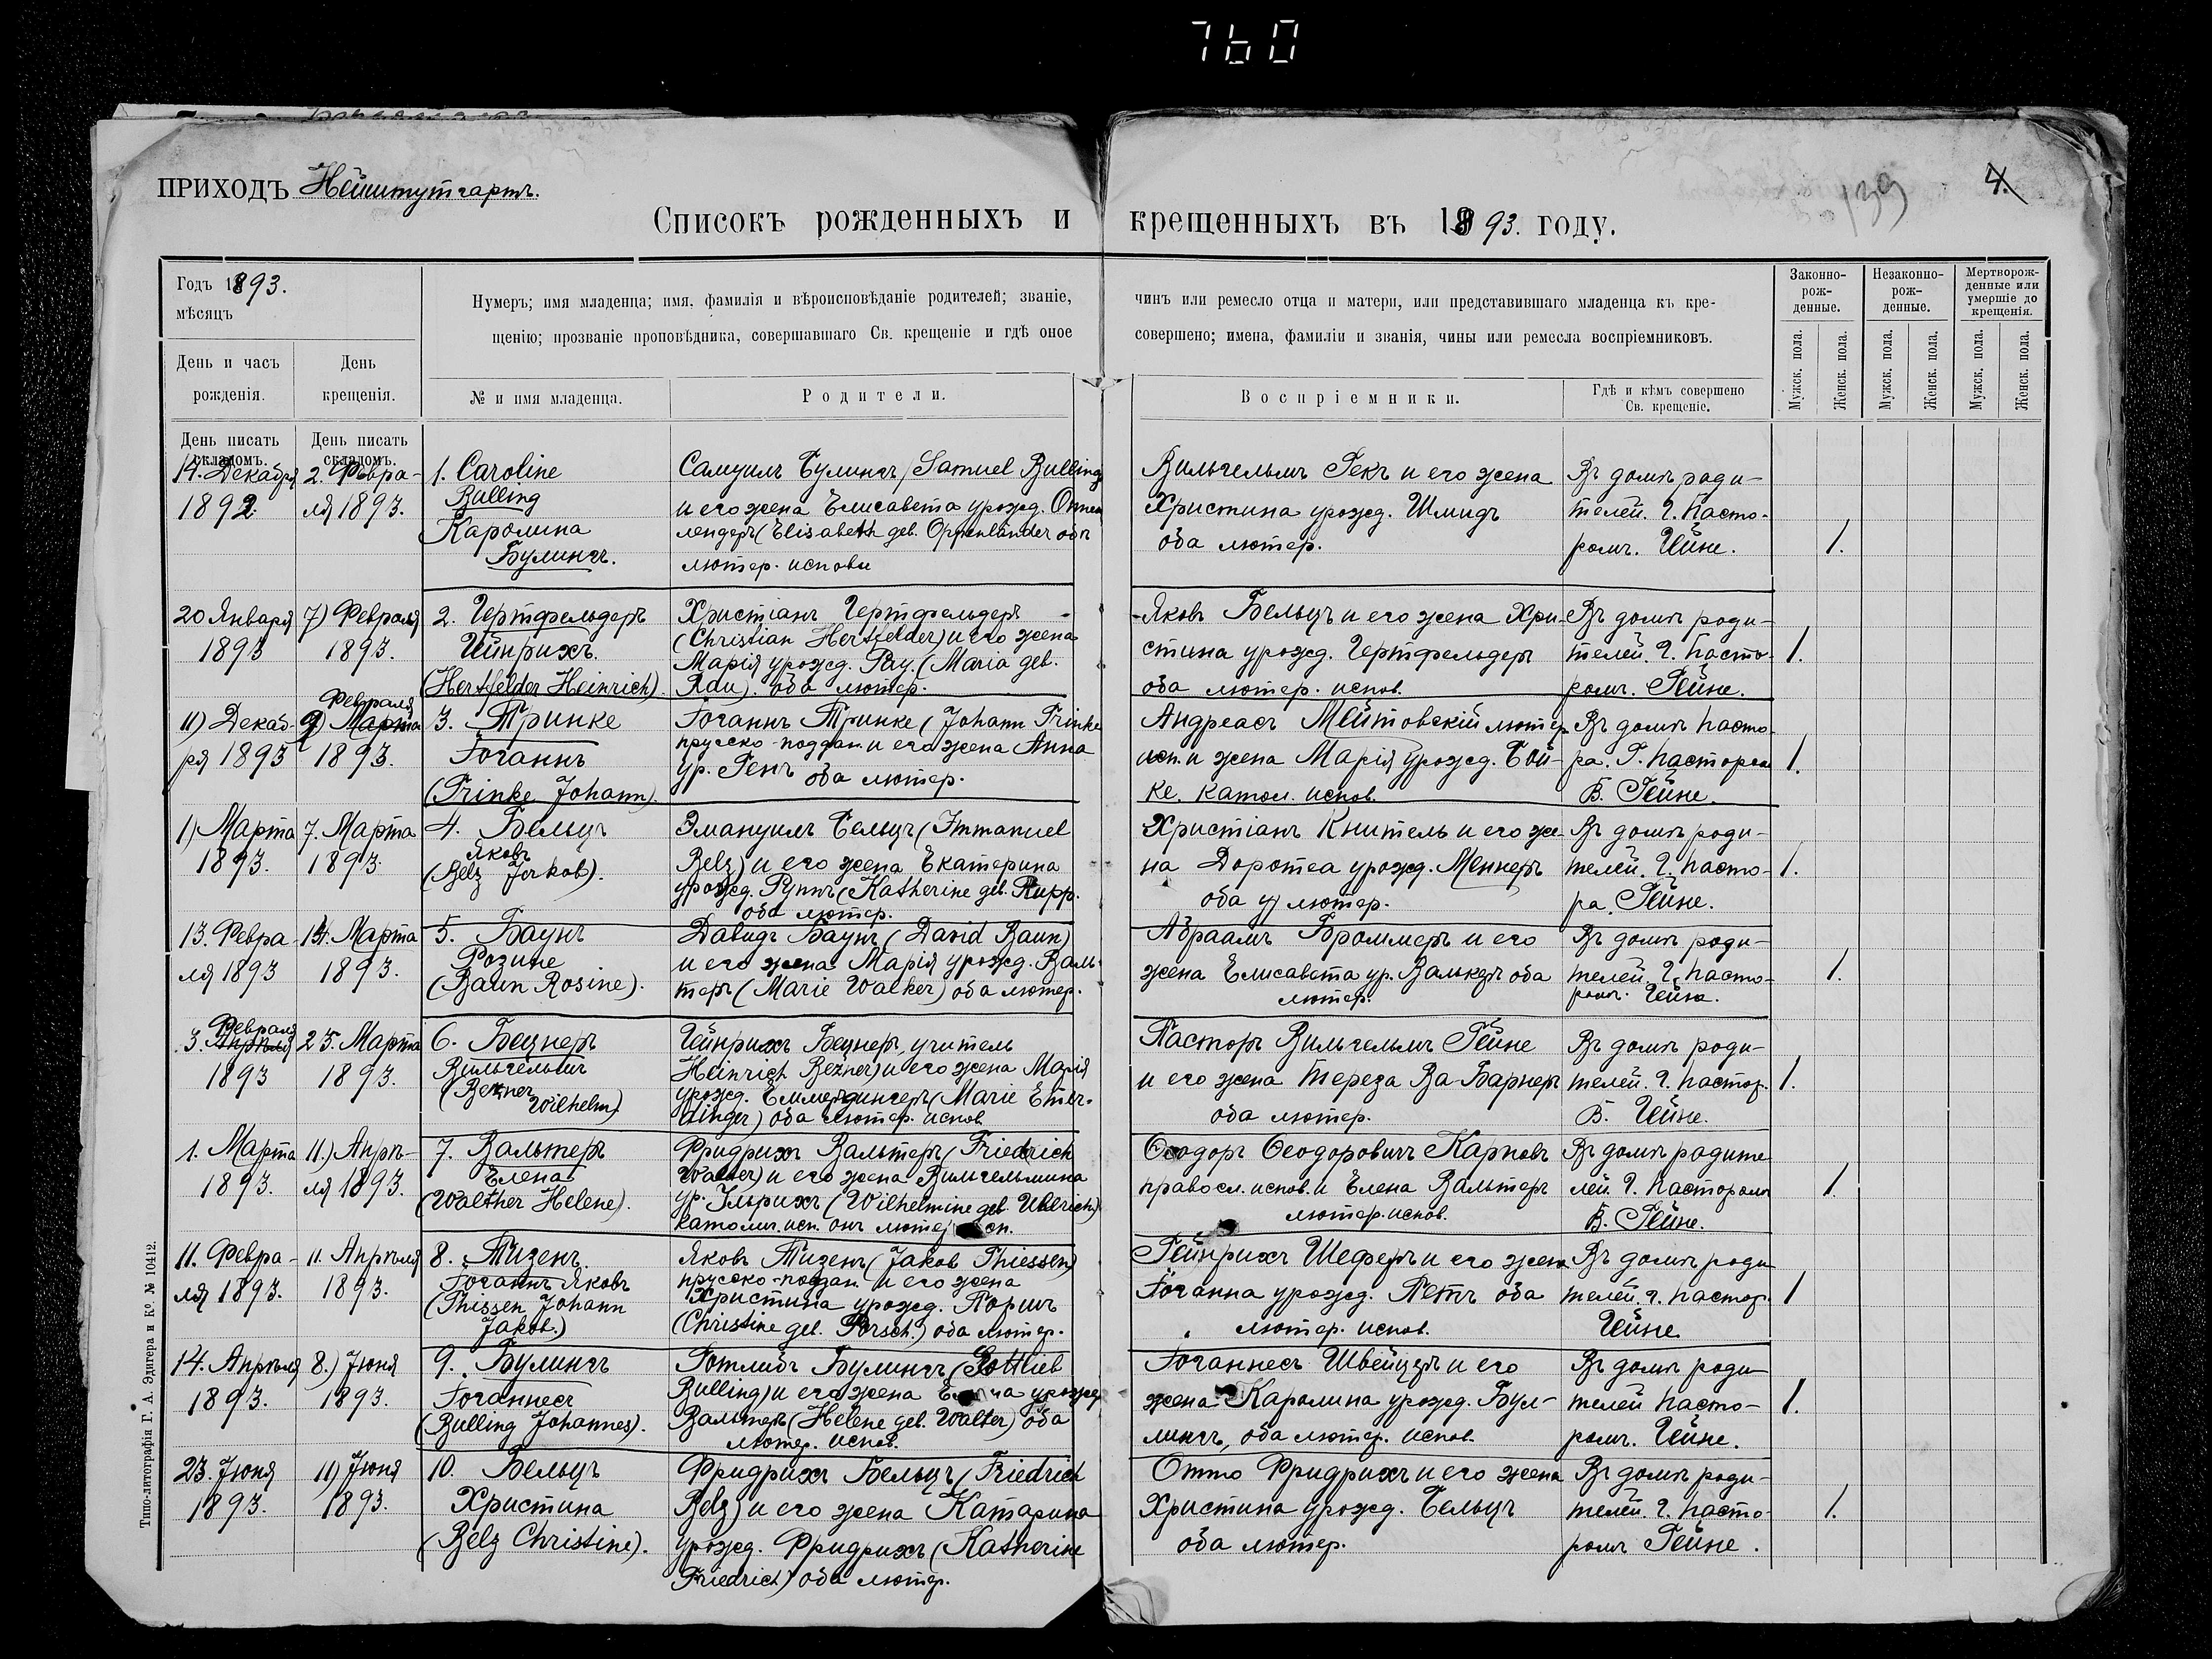 760
ПРИХОДЪ Нейштутгартъ.
139
4.
Списокъ рожденныхъ и крещенныхъ въ 1893. году.
Годъ 1893.
мѣсяцъ
Нумеръ; имя младенца; имя, фамилія и вѣроисповѣданіе родителей; званіе, чинъ или ремесло отца и матери, или представившаго младенца къ кре-
щенію; прозваніе проповѣдника, совершавшаго Св. крещеніе и гдѣ оное совершено; имена, фамиліи и званія, чины или ремесла воспріемниковъ.
Законно-
рож-
денные.
Незаконно-
рож-
денные.
Мертворож-
денные или
умершіе до
крещенія.
День и часъ
рожденія.
День
крещенія.
№ и имя младенца.
Родители.
Воспріемники.
Гдѣ и кѣмъ совершено
Св. крещеніе.
Мужск. пола.
Женск. пола.
Мужск. пола.
Женск. пола.
Мужск. пола.
Женск. пола.
День писать
складомъ.
День писать
складомъ.
14. Декабря
1892.
2. Февра-
ля 1893.
1. Caroline
Bulling
Каролина
Булингъ.
Самуилъ Булингъ (Samuel Bulling)
и его жена Елисавета урожд. Оппен
лендеръ (Elisabeth geb. Oppenländer оба
лютер. исповѣ
Вильгельмъ Гекъ и его жена
Христина урожд. Шмидъ
оба лютер.
Въ домѣ роди-
телей. Г. Пасто-
ромъ. Гейне.
1.
20 Января
1893
7) Февраля
1893.
2. Гертфельдеръ
Гейнрихъ.
(Hertfelder Heinrich).
Христіанъ Гертфельдеръ
(Christian Hertfelder) и его жена
Марія урожд. Рау. (Maria geb.
Rau). оба лютер.
Яковъ Бельцъ и его жена Хри-
стина урожд. Гертфельдеръ
оба лютер. испов.
Въ домѣ роди-
телей. Г. Пасто-
ромъ. Гейне.
1.
11) Декаб-
ря 1893
Февраля
9) Марта
1893.
3. Тринке
Іоганнъ
(Trinke Johann).
Іоганнъ Тринке (Johann Trinke
прусско-поддан. и его жена Анна
ур. Генъ оба лютер.
Андреасъ Мейтовскій лютер
исп. и жена Марія урожд. Бой-
ке. катол. испов.
Въ домѣ Пасто-
ра. Г. Пасторомъ
В. Гейне.
1.
1) Марта
1893.
7. Марта
1893.
4. Бельцъ
Яковъ
(Belz Jakob).
Эмануилъ Бельцъ (Immanuel
Belz) и его жена Екатерина
урожд. Руппъ (Katherine geb. Rupp.
оба лютер.
Христіанъ Книтель и его же-
на Доротеа урожд. Меннеръ
оба лютер.
Въ домѣ роди-
телей. Г. Пасто-
ра. Гейне.
1.
13. Февра
ля 1893
14. Марта
1893.
5. Баунъ
Розине
(Baun Rosine).
Давидъ Баунъ (David Baun)
и его жена Марія урожд. Валь-
теръ (Marie Walker) оба лютер.
Абраамъ Броммеръ и его
жена Елисавета ур. Валькеръ оба
лютер.
Въ домѣ роди-
телей. Г. Пасто-
ромъ. Гейне.
1.
Февраля
3. Апрѣля
1893
25. Марта
1893.
6. Бецнеръ
Вильгельмъ
(Bezner
Wilhelm)
Гейнрихъ Бецнеръ, учитель
Heinrich Bezner) и его жена Марія
урожд. Еммердингеръ (Marie Emer-
dinger) оба лютер. испов.
Пасторъ Вильгельмъ Гейне
и его жена Тереза Ва-Барнеръ
оба лютер.
Въ домѣ роди-
телей. Г. Пастор.
В. Гейне.
1.
1. Марта
1893.
11.) Апрѣ-
ля 1893.
7. Вальтеръ
Елена
(Walther Helene).
Фридрихъ Вальтеръ (Friedrich
Walter) и его жена Вильгельмина
ур. Ульрихъ (Wilhelmine geb. Uhlrich)
католич. исп. онъ лютер. исп.
Ѳеодоръ Ѳеодоровичъ Карповъ
правосл. испов. и Елена Вальтеръ
лютер. испов.
Въ домѣ родите
лей. Г. Пасторомъ
В. Гейне.
1.
11. Февра-
ля 1893.
11. Апрѣля
1893.
8. Тизенъ.
Іоганнъ Яковъ
(Thissen Johann
Jakob.)
Яковъ Тизенъ (Jakob Thiessen)
прусско-поддан. и его жена
Христина урожд. Поршъ
(Christine geb. Porsch.) оба лютер.
Гейнрихъ Шеферъ и его жена
Іоганна урожд. Петъ оба
лютер. испов.
Въ домѣ роди
телей. Г. Пастор.
Гейне
1
14. Апрѣля
1893.
8.) Іюня
1893.
9. Булингъ
Іоганнесъ
(Bulling Johannes).
Готлибъ Булингъ (Gottlieb
Bulling) и его жена урожд.
Вальтеръ (Helene geb. Walter) оба
лютер. испов.
Іоганнесъ Швейцеръ и его
жена Каролина урожд. Бул-
лингъ, оба лютер. испов.
Въ домѣ роди
телей Пасто-
ромъ. Гейне.
1.
23. Іюня
1893.
11) Іюня
1893.
10. Бельцъ
Христина
(Belz Christine).
Фридрихъ Бельцъ (Friedrich
Belz) и его жена Катарина
урожд. Фридрихъ (Katherine
Friedrich) оба лютер.
Отто Фридрихъ и его жена
Христина урожд. Бельцъ
оба лютер.
Въ домѣ роди-
телей. Г. Пасто-
ромъ Гейне.
1.
Типо-литографія Г. А. Эдигера и Кº. № 10412.